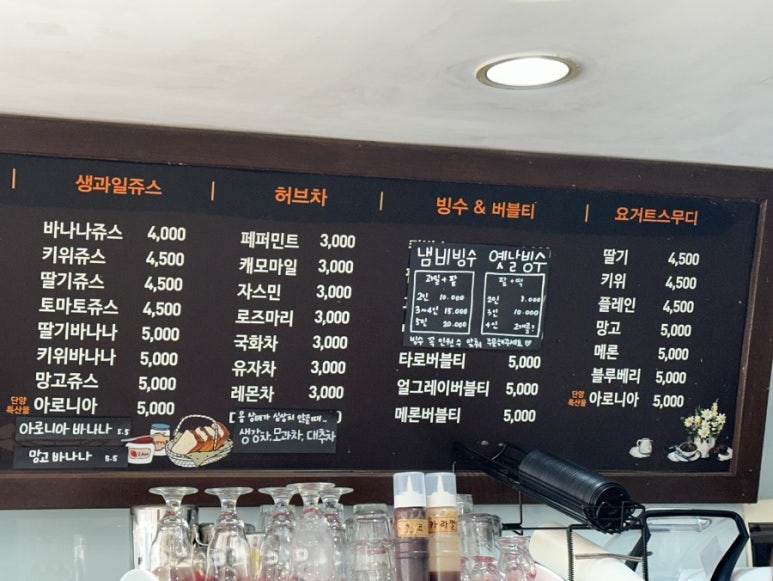 생과일쥬스
바나나쥬스 4,000
키위쥬스 4,500
딸기쥬스 4,500
토마토쥬스 4,500
딸기바나나 5,000
키위바나나 5,000
망고쥬스 5,000
단양
특산물 아로니아 5,000
아로니아 바나나 5.5
망고바나나 5.5
허브차
페퍼민트 3,000
캐모마일 3,000
자스민 3,000
로즈마리 3,000
국화차 3,000
유자차 3,000
레몬차 3,000
생강차, 모과차, 대추차
빙수 & 버블티
냄비빙수
과일+팥
2인 10.000
3~4인 15.000
5인 20.000
옛날빙수
팥+떡
2인
3인 10.000
4인
빙수 꼭 인원수 맞춰 주문해주세요
타로버블티 5,000
얼그레이버블티 5,000
메론버블티 5,000
요거트스무디
딸기 4,500
키위 4,500
플레인 4,500
망고 5,000
메론 5,000
블루베리 5,000
단양
특산물 아로니아 5,000